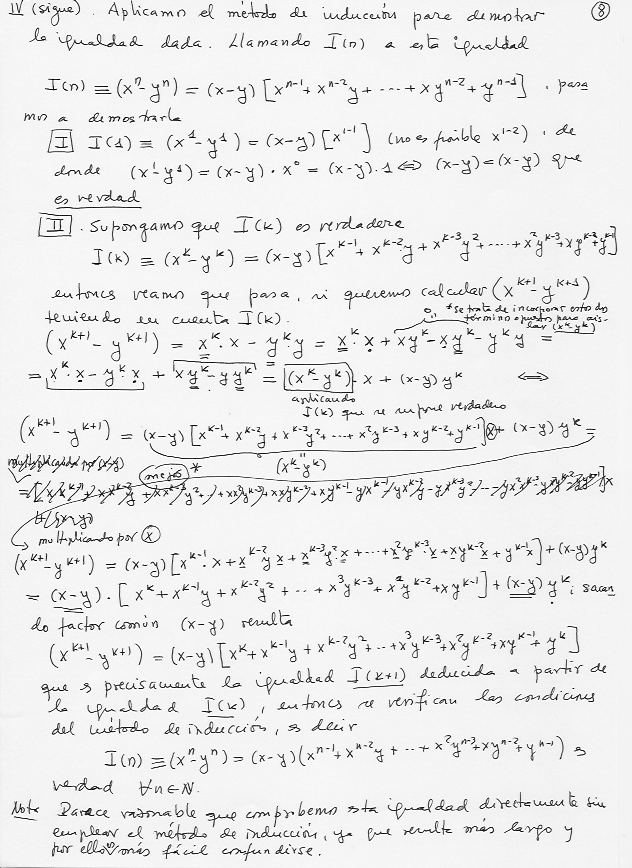 IV (sigue). Aplicamos el método de inducción para demostrar ⑧
la igualdad dada. Llamando I(n) a esta igualdad
I(n) ≡ (xⁿ-yⁿ) = (x-y) [xⁿ⁻¹+xⁿ⁻²y+ --- +xyⁿ⁻²+yⁿ⁻¹] . pasa
mos a demostrarla
I I(1) ≡ (x¹-y¹) = (x-y) [x¹⁻¹] (no es posible x¹⁻²) , de
donde (x¹-y¹) = (x-y) · x⁰ = (x-y).1 ⇔ (x-y) = (x-y) que
es verdad
II . Supongamos que I(k) es verdadera
I(k) ≡ (xᵏ-yᵏ) = (x-y) [xᵏ⁻¹+xᵏ⁻²y+xᵏ⁻³y²+---+x²yᵏ⁻³+xyᵏ⁻²+yᵏ⁻¹]
entonces veamos que pasa, si queremos calcular (xᵏ⁺¹-yᵏ⁺¹)
teniendo en cuenta I(k).
*se trata de incorporar estos dos
término opuestos para ais-
lar (xᵏ-yᵏ)
0
"
(xᵏ⁺¹-yᵏ⁺¹) = xᵏ·x - yᵏ·y = xᵏ·x + xyᵏ - xyᵏ - yᵏy =
= xᵏ·x - yᵏ·x + xyᵏ - yyᵏ = (xᵏ-yᵏ)·x + (x-y)yᵏ ⇔
aplicando
I(k) que se supone verdadero
(xᵏ⁺¹-yᵏ⁺¹) = (x-y) [xᵏ⁻¹+xᵏ⁻²y+xᵏ⁻³y²+--+x²yᵏ⁻³+xyᵏ⁻²+yᵏ⁻¹]x + (x-y)yᵏ =
" (xᵏ-yᵏ)
mejor *
multiplicando por x
(xᵏ⁺¹-yᵏ⁺¹) = (x-y) [xᵏ⁻¹·x+xᵏ⁻²y x+xᵏ⁻³y²x+---+x²yᵏ⁻³·x+xyᵏ⁻²x+yᵏ⁻¹x]+(x-y)yᵏ
= (x-y) . [xᵏ+xᵏ⁻¹y+xᵏ⁻²y²+--+x³yᵏ⁻³+x²yᵏ⁻²+xyᵏ⁻¹] + (x-y)yᵏ; sacan
do factor común (x-y) resulta
(xᵏ⁺¹-yᵏ⁺¹) = (x-y) [xᵏ+xᵏ⁻¹y+xᵏ⁻²y²+--+x³yᵏ⁻³+x²yᵏ⁻²+xyᵏ⁻¹+yᵏ]
que es precisamente la igualdad I(k+1) deducida a partir de
la igualdad I(k) , entonces se verifican las condiciones
del método de inducción, es decir
I(n) ≡ (xⁿ-yⁿ) = (x-y)(xⁿ⁻¹+xⁿ⁻²y+--+x²yⁿ⁻³+xyⁿ⁻²+yⁿ⁻¹) es
verdad ∀n∈N.
Nota Parece razonable que comprobemos esta igualdad directamente sin
emplear el método de inducción, ya que resulta más largo y
por ello más fácil confundirse.